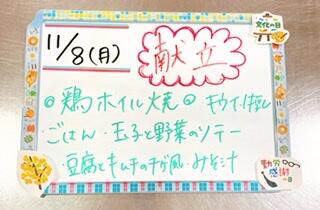 文化の日
11/8(月) 献立
◎鶏ホイル焼◎ キウイ
・ごはん ・玉子と野菜のソテー
・豆腐とキムチのチゲ風・みそ汁
勤労
感謝
の日